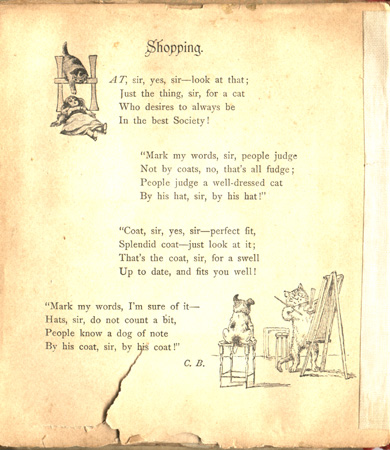 Shopping.
AT, sir, yes, sir—look at that;
Just the thing, sir, for a cat
Who desires to always be
In the best Society!
"Mark my words, sir, people judge
Not by coats, no, that's all fudge;
People judge a well-dressed cat
By his hat, sir, by his hat!"
"Coat, sir, yes, sir—perfect fit,
Splendid coat—just look at it;
That's the coat, sir, for a swell
Up to date, and fits you well!
"Mark my words, I'm sure of it—
Hats, sir, do not count a bit,
People know a dog of note
By his coat, sir, by his coat!"
C. B.